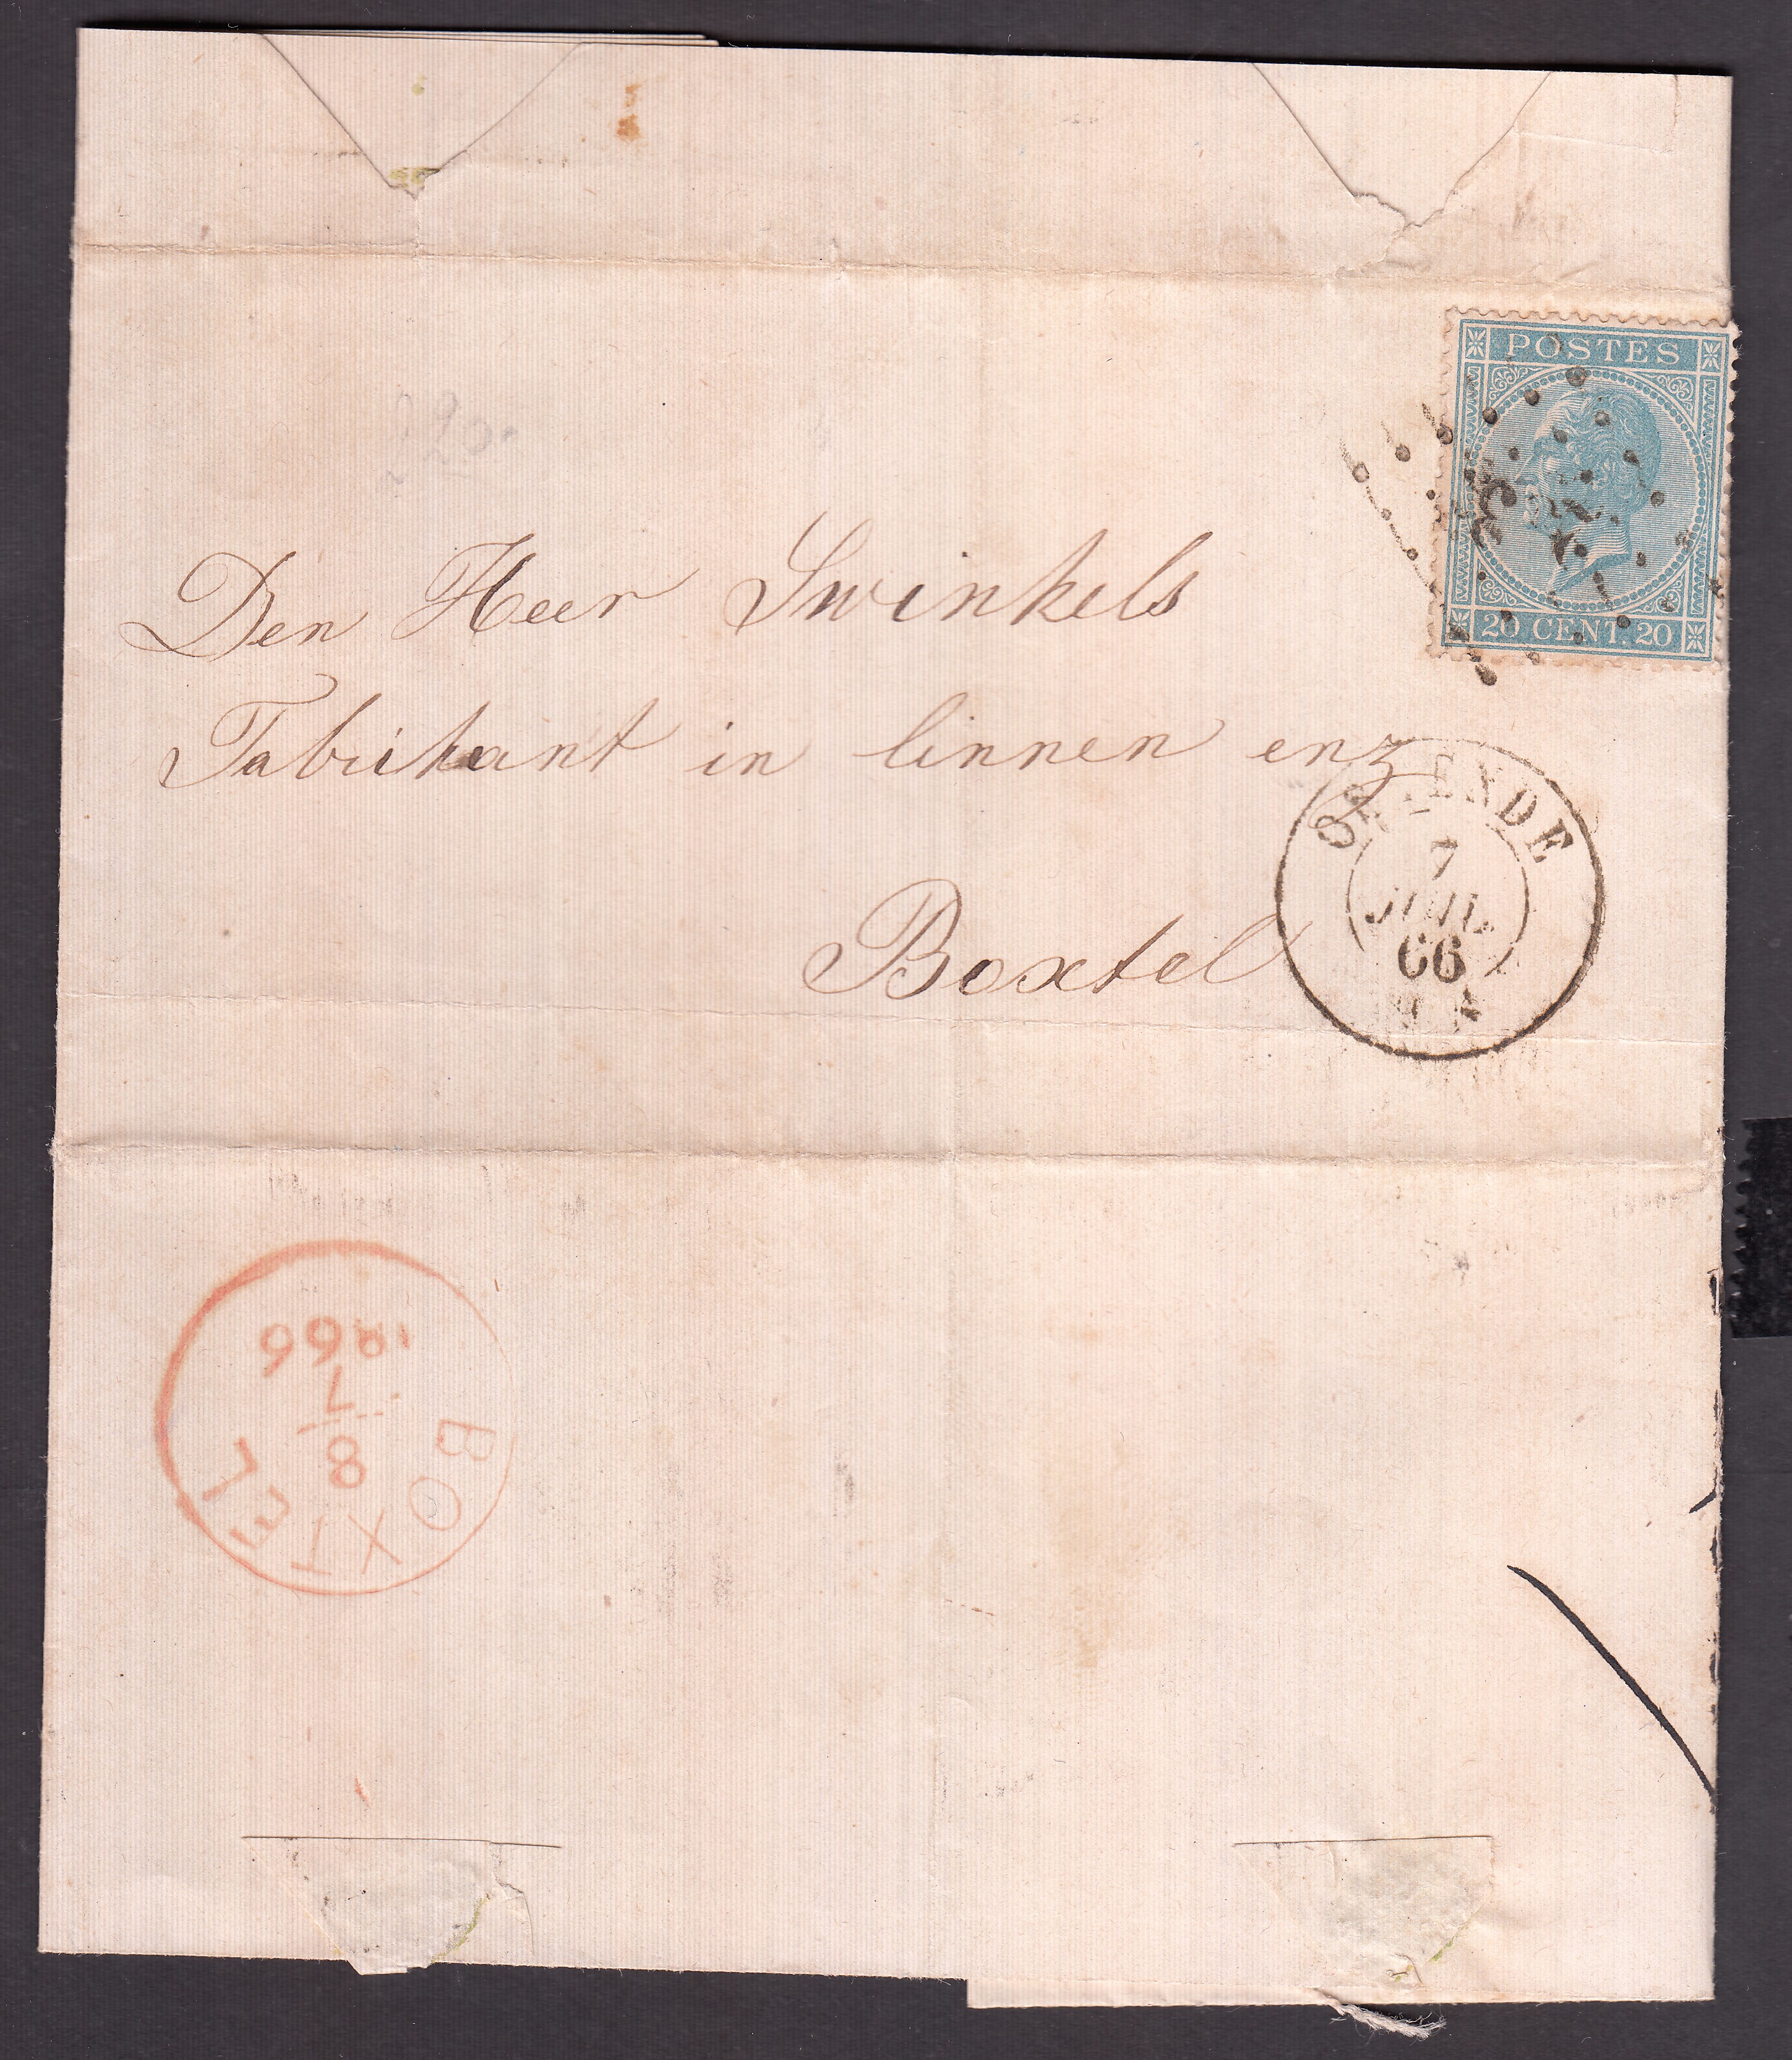 POSTES
20 CENT. 20
Den Heer Swinkels
Fabrikant in linnen enz
Boxtel
OSTENDE
7
JUIL
66
BOXTEL
8
7
1866